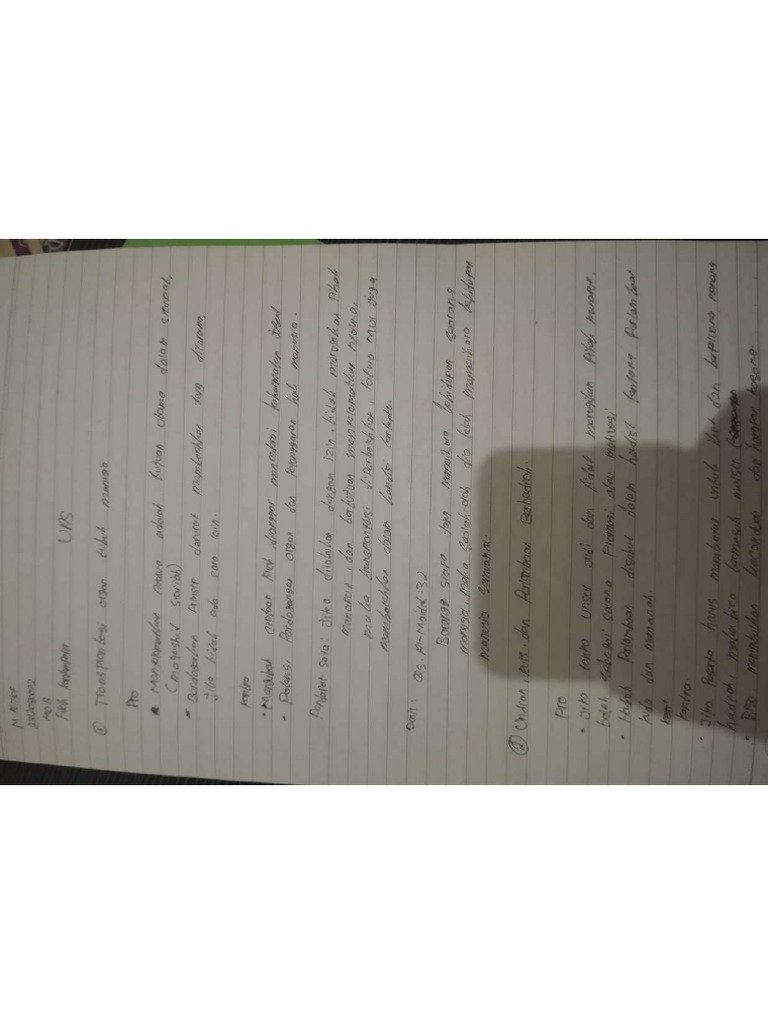 UAS
① Transplantasi organ tubuh manusia
Pro
• Menyelamatkan nyawa adalah tujuan utama dalam syariah,
(maqashid syariah)
• Berdasarkan prinsip darurat membolehkan yang dilarang,
jika tidak ada cara lain.
kontra
• Mengubah ciptaan Allah dianggap kehormatan
• Potensi Perdagangan organ dan Pelanggaran hak manusia.
Pendapat saya: Jika dilakukan dengan izin, tidak merugikan Pihak
manapun, dan bertujuan menyelamatkan nyawa,
maka transplantasi diperbolehkan, fatwa MUI juga
membolehkan dalam kondisi tertentu.
Dalil: QS. Al-Maidah: 32
Barang siapa yang memelihara kehidupan seorang
manusia, maka seolah-olah dia telah memelihara kehidupan
manusia semuanya.
② Undian, kuis, dan Perlombaan Berhadiah.
Pro
• Jika tanpa unsur judi dan tidak merugikan Pihak manapun,
boleh sebagai sarana Promosi atau motivasi
• Hadiah Perlombaan disebut dalam hadist tentang Perlombaan
kuda dan memanah.
kontra
• Jika Peserta harus membayar untuk ikut dan berpeluang menang
hadiah, maka bisa termasuk maisir
• Bisa menimbulkan kecanduan dan harapan kosong.